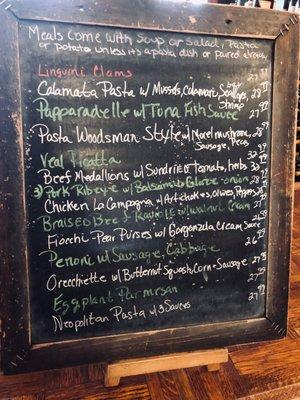 Meals come with Soup or Salad, Pasta
or potato unless it's a pasta dish or paired already
Linguini Clams 27.99
Calamata Pasta w/ Mussels, Calamari, Scallops,
Shrimp
Papparadelle w/ Tuna Fish Sauce 27.99
Pasta Woodsman Style w/ Morel mushrooms, 28.99
Sausage, Peas
Veal Picatta 30.99
Beef Medallions w/ Sundried Tomato, herb
Pork Ribeye w/ Balsamic Glaze onion 28
Chicken La Campagna w/ Artichokes, olives, Peppers
Braised Beef Ravioli w/ walnut Cream 27
Fiocchi-Pear Purses w/ Gorgonzola Cream Sauce 26
Penoni w/ Sausage, Cabbage 26
Orecchiette w/ Butternut Squash, Corn, Sausage 27
Eggplant Parmesan 27
Neopolitan Pasta w/ 3 Sauces 27